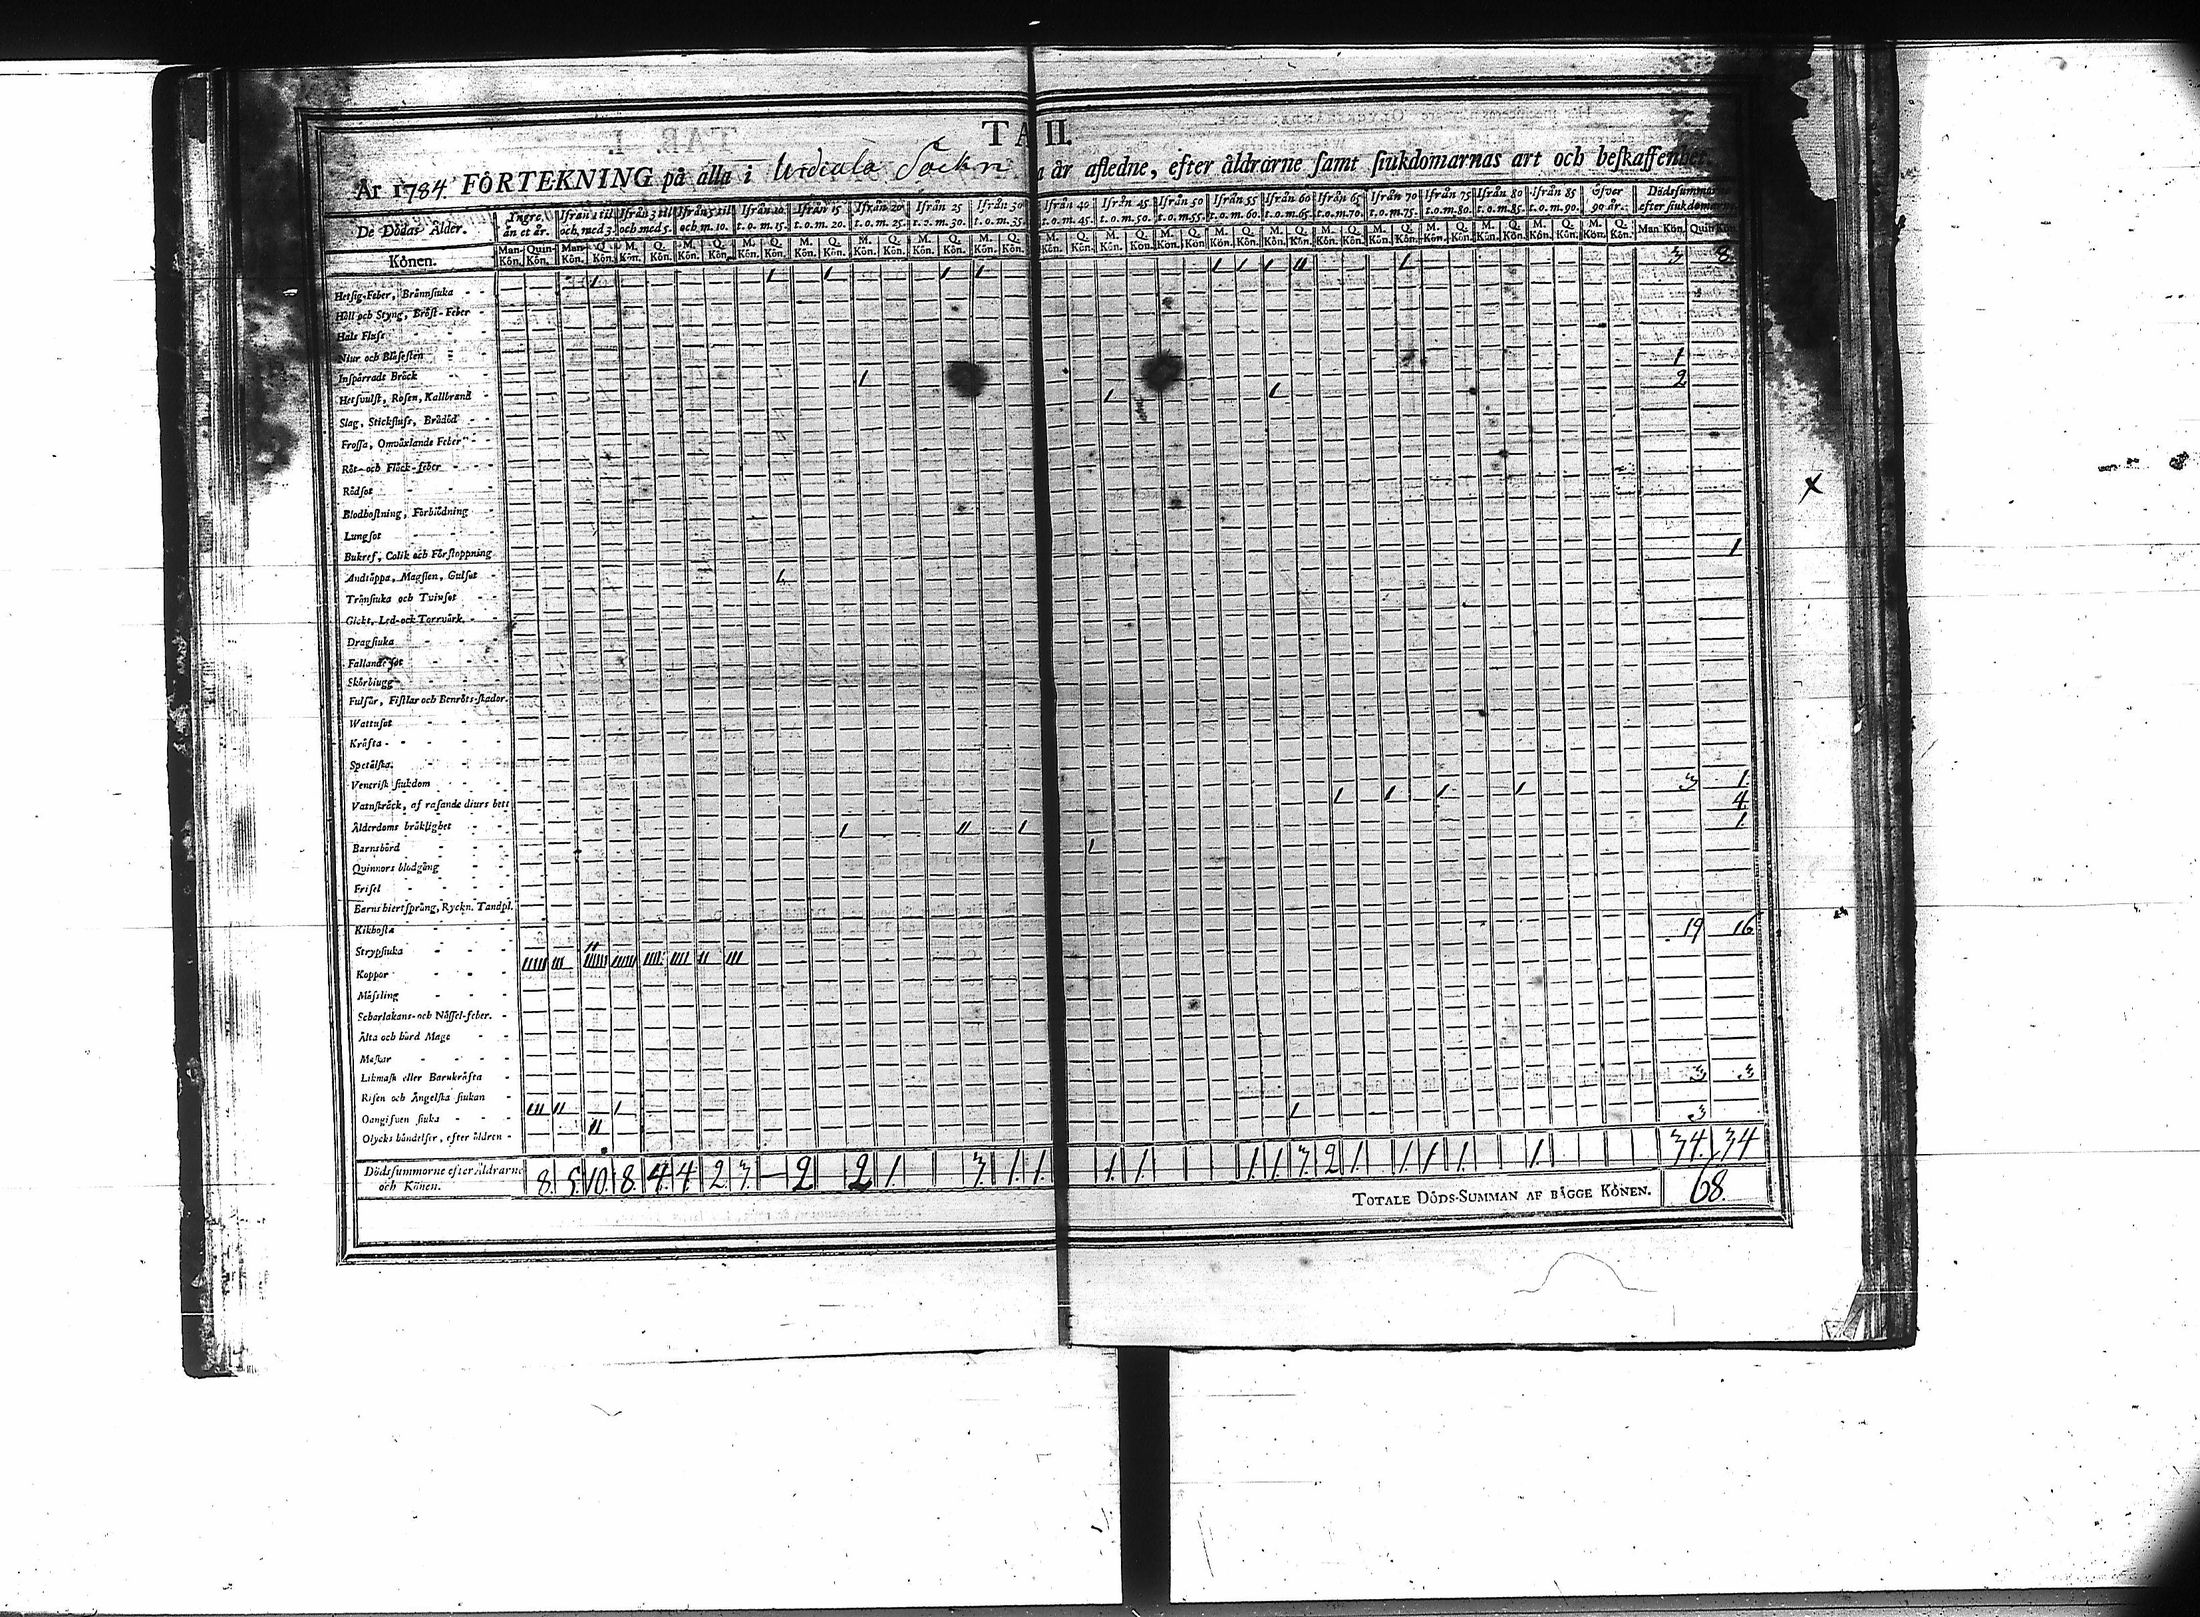 TA II.
År 1784 FÖRTEKNING på alla i Urdiala Sockn år afledne, efter åldrarne samt siukdomarnas art och beskaffenhet.
De Dödas Ålder. Yngre än et år. Ifrån 1 til och med 3. Ifrån 3 til och med 5. Ifrån 5 til och m. 10. Ifrån 10 t.o.m. 15. Ifrån 15 t.o.m. 20. Ifrån 20 t.o.m. 25. Ifrån 25 t.o.m. 30. Ifrån 30 t.o.m. 35. Ifrån 40 t.o.m. 45. Ifrån 45 t.o.m. 50. Ifrån 50 t.o.m. 55. Ifrån 55 t.o.m. 60. Ifrån 60 t.o.m. 65. Ifrån 65 t.o.m. 70. Ifrån 70 t.o.m. 75. Ifrån 75 t.o.m. 80. Ifrån 80 t.o.m. 85. Ifrån 85 t.o.m. 90. Öfver 90 år. Dödssummorne efter siukdomarne
Könen. Man-Kön. Quin-Kön. Man-Kön. Q. Kön. M. Kön. Q. Kön. M. Kön. Q. Kön. M. Kön. Q. Kön. M. Kön. Q. Kön. M. Kön. Q. Kön. M. Kön. Q. Kön. M. Kön. Q. Kön. M. Kön. Q. Kön. M. Kön. Q. Kön. M. Kön. Q. Kön. M. Kön. Q. Kön. M. Kön. Q. Kön. M. Kön. Q. Kön. M. Kön. Q. Kön. M. Kön. Q. Kön. M. Kön. Q. Kön. M. Kön. Q. Kön. M. Kön. Q. Kön. Man Kön. Quin Kön.
Hetsig-Feber, Brännsiuka 1 1 1 1 1 1 1 1 11 1 3 8
Håll och Styng, Bröst-Feber
Hals Fluss
Niur och Blåsesten
Inspärradt Bråck 1 1
Hetsvulst, Rosen, Kallbrand 1 1 2
Slag, Stickfluss, Brådöd
Frossa, Omväxlande Feber
Röt- och Fläck-feber
Rödsot
Blodhostning, Förblödning
Lungsot
Bukref, Colik och Förstoppning
Andtäppa, Magsten, Gulsot 1 1
Trånsiuka och Tvinsot
Gickt, Led- och Torrvärk
Dragsiuka
Fallandesot
Skörbiugg
Fulsår, Fistlar och Benröts-skador
Wattusot
Kräfta
Spetälska
Venerisk siukdom
Vatnskräck, af rasande diurs bett
Ålderdoms bräklighet 1 1 1 1 3 1.
Barnsbörd 1 11 1 4.
Quinnors blodgång 1 1.
Frisel
Barns hiertsprång, Ryckn. Tandpl.
Kikhosta
Strypsiuka
Koppor 19 16
Mässling
Scharlakans- och Nässel-feber.
Älta och hård Mage
Maskar
Likmask eller Barnkräfta
Risen och Ängelska siukan
Oangifven siuka 111 11 1 1 3 3
Olycks händelser, efter åldren 11 3
Dödssummorne efter Åldrarne och Könen. 8. 5. 10. 8. 4. 4 2 3. — 2 2 1. 3. 1. 1. 1. 1. 1. 1. 3. 2 1. 1. 1 1. 1. 34. 34
TOTALE DÖDS-SUMMAN AF BÄGGE KÖNEN. 68.